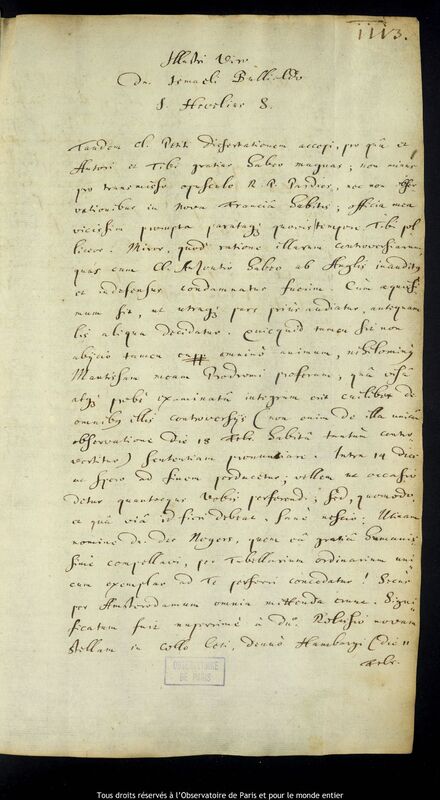 1113.
Illustri Viro
Dn. Ismaeli Bullialdo
J. Hevelius S.
Tandem Cl. Petiti dissertationem accepi, pro quâ et
Autori et Tibi gratias habeo magnas; non minus
pro transmisso opusculo R. P. Pardies, nec non obser
vationibus in Nova Franciâ habitis; officia mea
vicissim prompta parataq; quovis tempore Tibi pol
liceor. Miror, quod ratione illarum controversiarum,
quas cum Cl. Auzoutio habeo ab Anglis inauditus
et indefensus condemnatus fuerim. Cum æquissi
mum sit, ut utraq; pars prius audiatur, antequam
lis aliqua decidatur. Quicquid tamen sit non
abjicio tamen omninò animum, nihilominus
Mantissam meam Prodromi proferam, quâ visâ
atq; probè examinatâ integrum erit cuilibet de
omnibus illis controversijs (non enim de illa unica
observatione die 18 Feb: habitâ tantùm contro
vertitur) sententiam pronunciare. Intra 14 dies
ut spero ad finem perducetur; vellem ut occasio
detur quantocyus Vobis perferendi; sed, quomodo
et quâ viâ id fieri debeat, sanè nescio. Utinam
nomine Dn. des Noyers, quem eâ gratiâ humanis
simè compellavi, per Tabellarium ordinarium uni
cum exemplar ad Te perferri concedatur! Secus
per Amsterodamum omnia mittenda erunt. Signi
ficatum fuit nuperrimè à Dn. novam
stellam in collo Ceti, denuò Hamburgi (die 11
OBSERVATOIRE
DE PARIS
Tous droits réservés à l'Observatoire de Paris et pour le monde entier